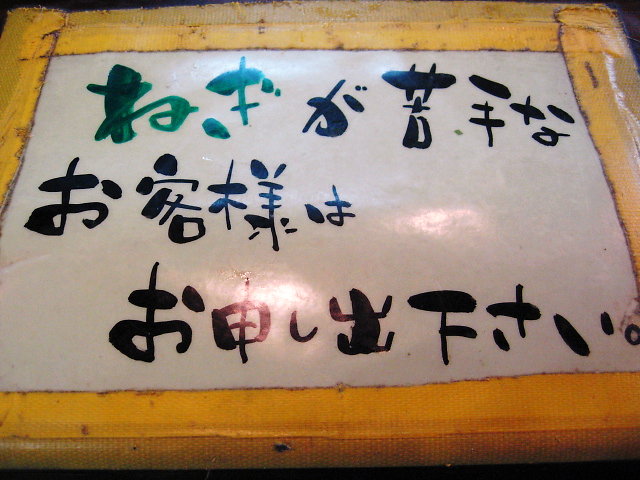 ねぎが苦手な
お客様は
お申し出下さい。